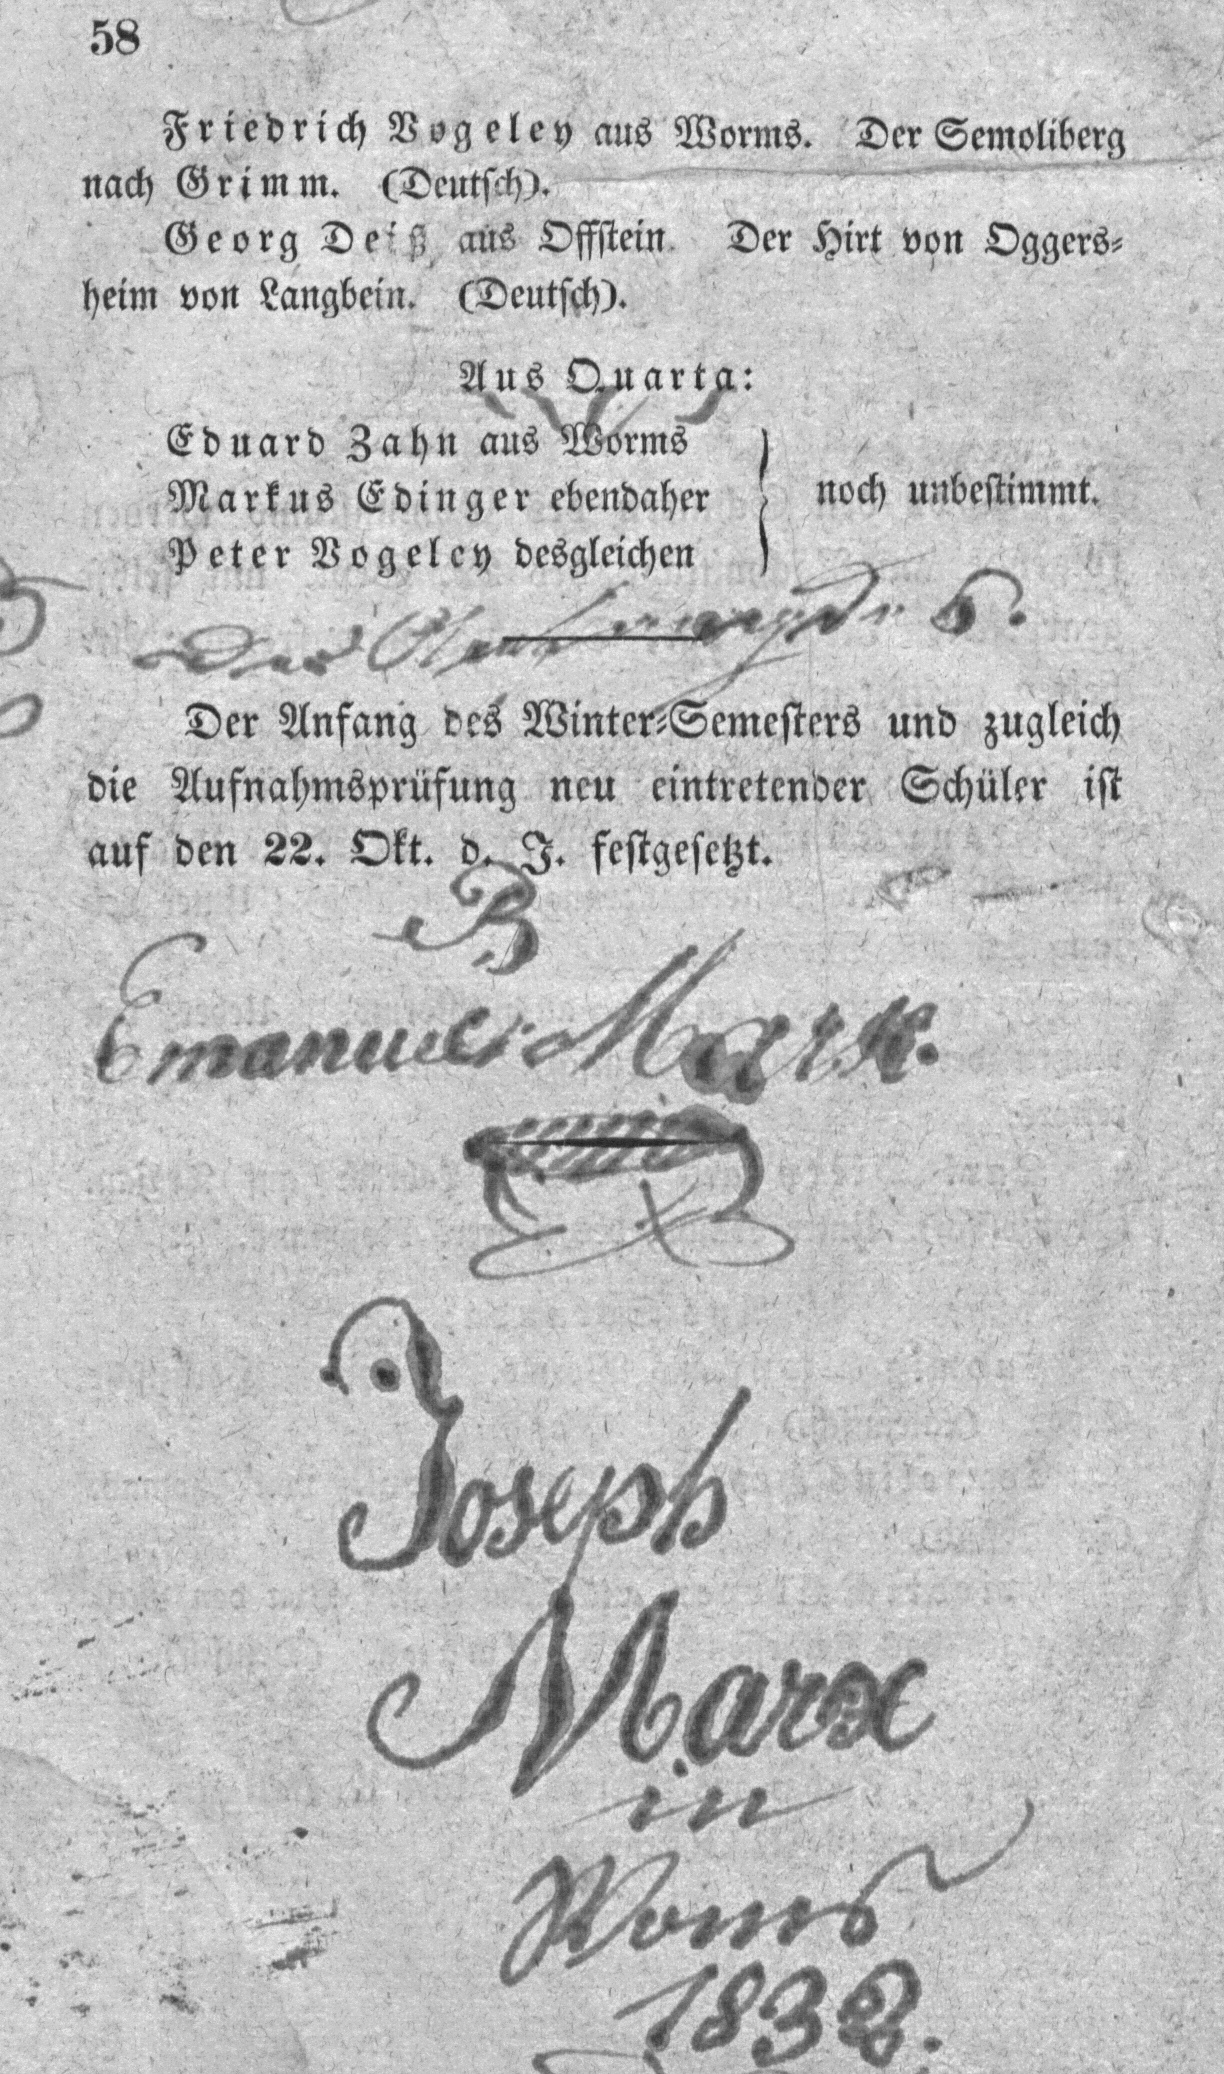 58
Friedrich Vogeley aus Worms. Der Semoliberg
nach Grimm. (Deutsch).
Georg Deiß aus Offstein. Der Hirt von Oggers⸗
heim von Langbein. (Deutsch).
Aus Quarta:
Eduard Zahn aus Worms
Markus Edinger ebendaher
Peter Vogeley desgleichen
noch unbestimmt.
Der Anfang des Winter⸗Semesters und zugleich
die Aufnahmsprüfung neu eintretender Schüler ist
auf den 22. Okt. d. J. festgesetzt.
B
Emanuel Marx.
Joseph
Marx
in
Worms
1838.